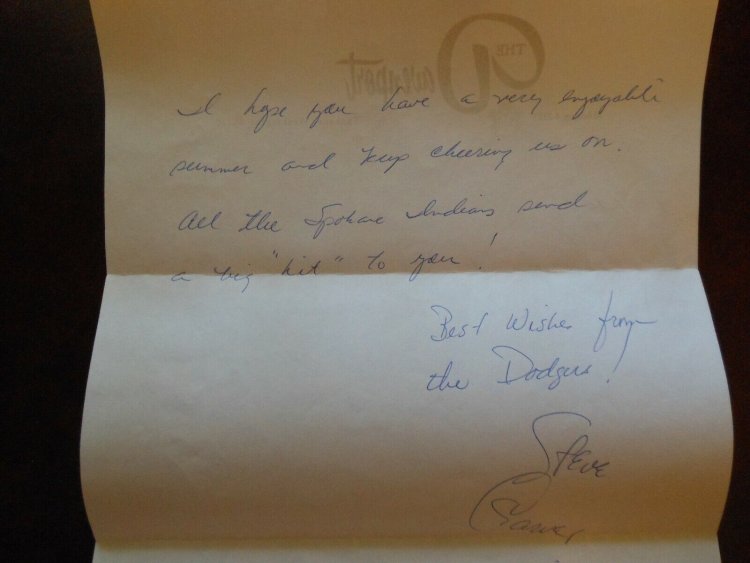 THE
Davenport
I hope you have a very enjoyable
summer and keep cheering us on.
All the Spokane Indians send
a big "hit" to you!
Best Wishes from
the Dodgers!
Steve
Garvey